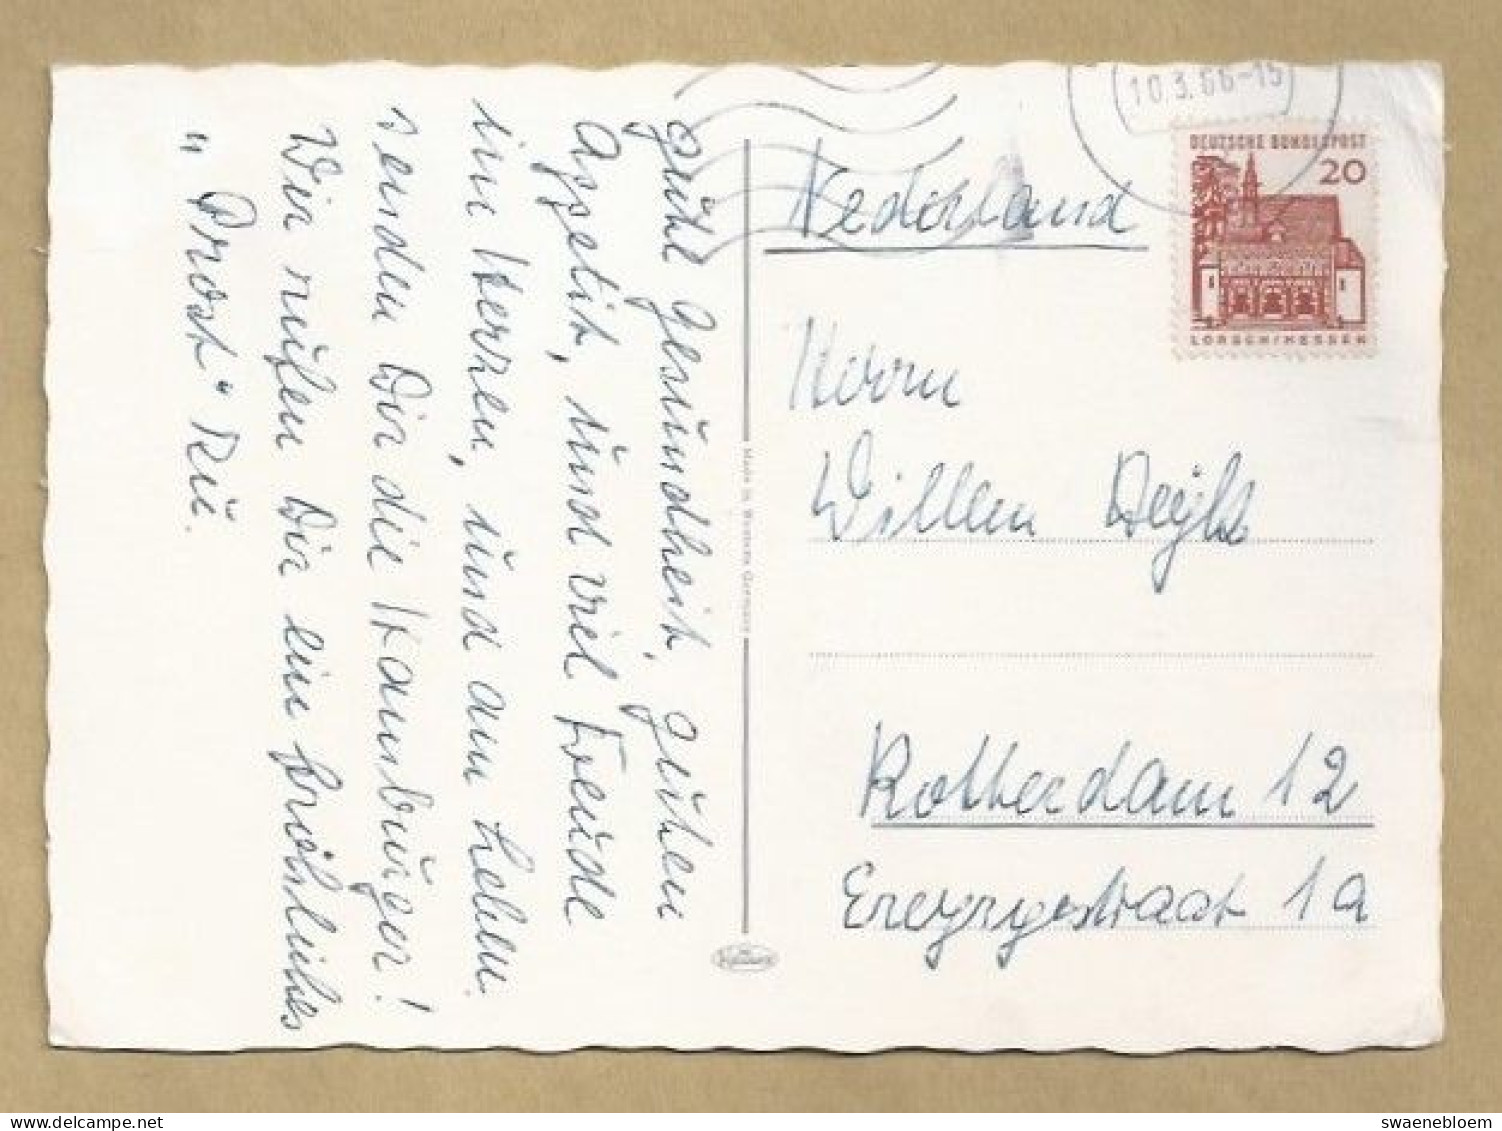 gute Gesundheit, guten
Appetit, und viel Freude
im Herzen, und am Leben
senden Dir die Hamburger!
Wir rufen Dir ein fröhliches
„Prost" zu.
Made in Western Germany
10.3.66-15
DEUTSCHE BUNDESPOST
20
LORSCH/HESSEN
Nederland
Herrn
Willem
Rotterdam 12
1a
swaenebloem